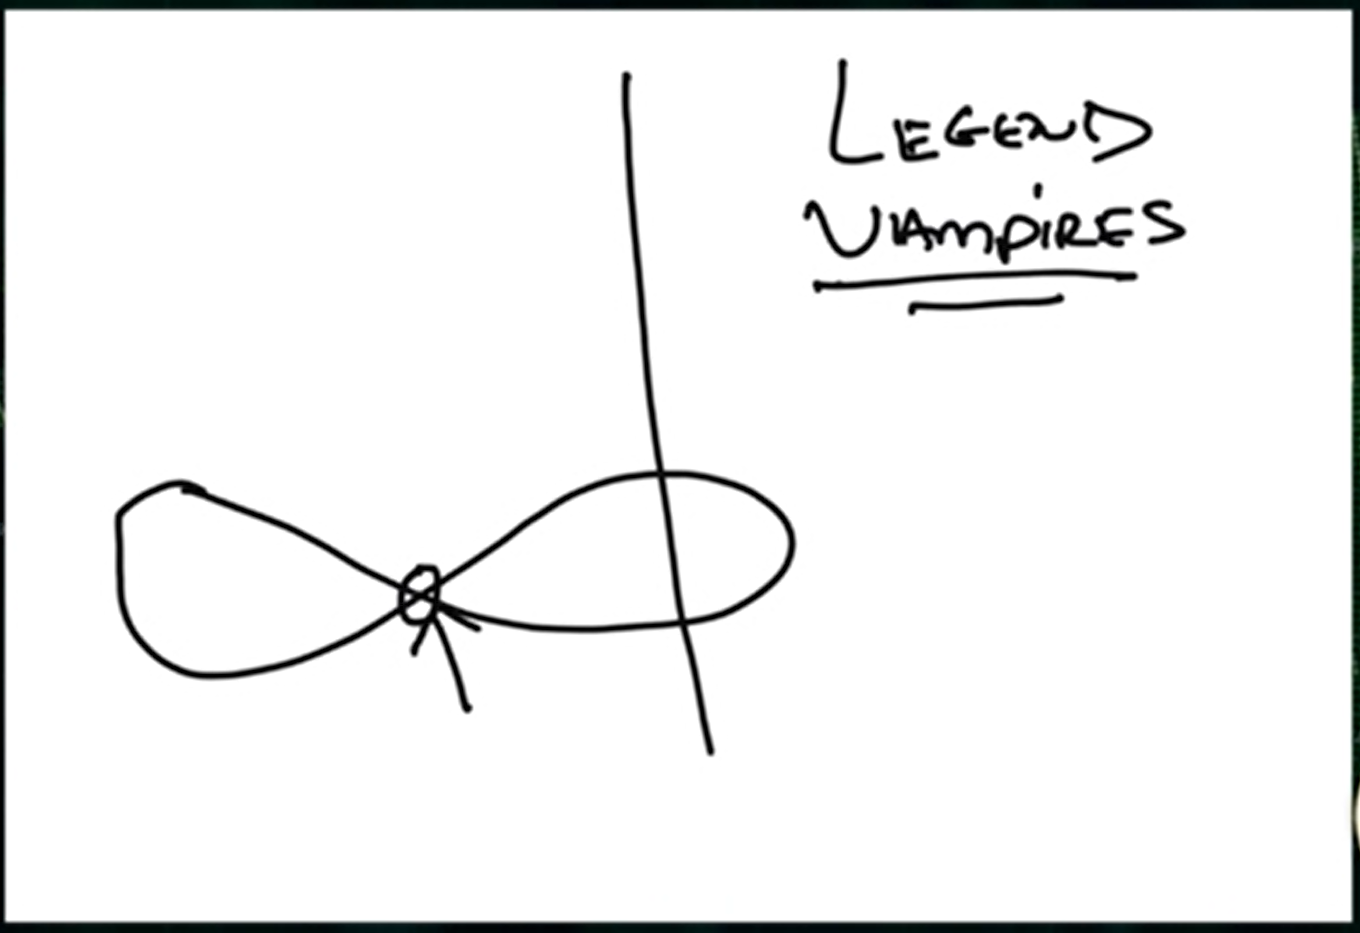 LEGEND
VAMPIRES